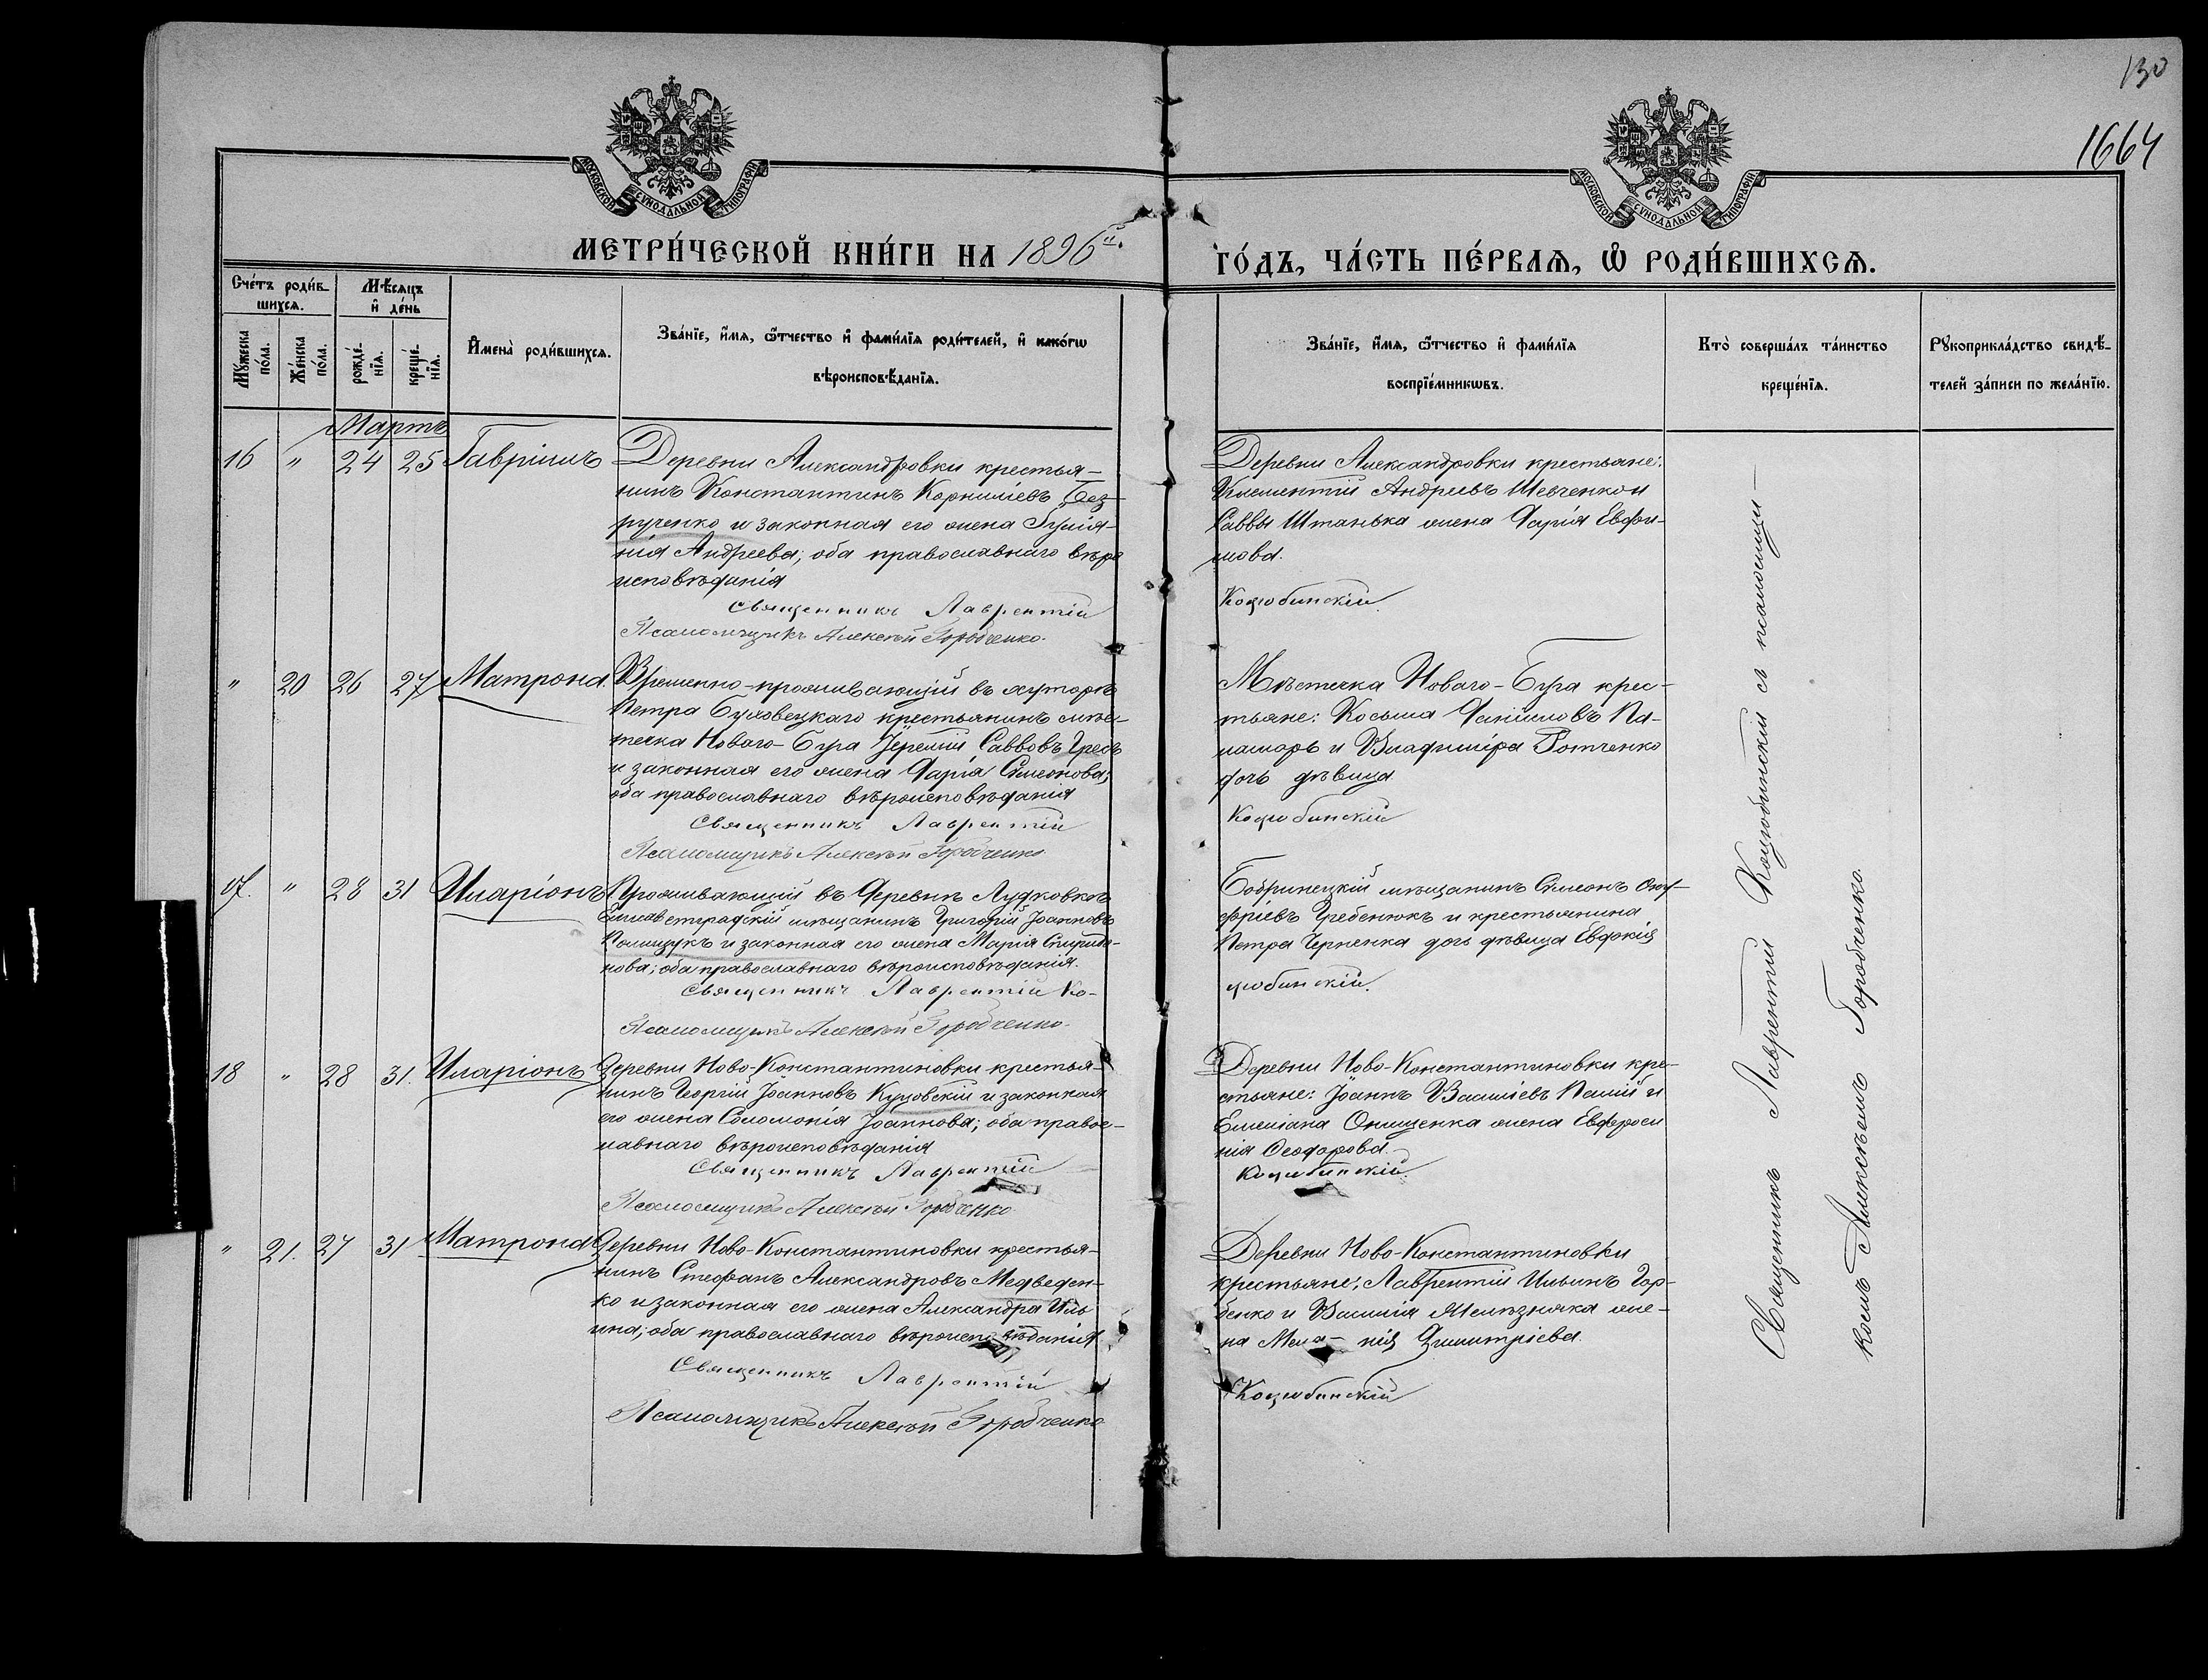 130
1664
МОСКОВСКОЙ СУНОДАЛЬНОЙ ТИПОГРАФІИ
МОСКОВСКОЙ СУНОДАЛЬНОЙ ТИПОГРАФІИ
МЕТРИ́ЧЕСКОЙ КНИ́ГИ НА 1896й.
ГО́ДЪ, ЧА́СТЬ ПЕ́РВАѦ, Ѡ҆ РОДИ́ВШИХСѦ.
Счетъ роди́в-
шихсѧ.
Мѣсѧцъ
и҆ де́нь
Мꙋжеска по́ла.
Же́нска по́ла.
рожде́-нїѧ.
креще́-нїѧ.
И҆мена̀ роди́вшихсѧ.
Зва́нїе, и҆́мѧ, ѻ҆́тчество и҆ фами́лїѧ роди́телей, и҆ како́гѡ
вѣроисповѣ́данїѧ.
Зва́нїе, и҆́мѧ, ѻ҆́тчество и҆ фами́лїѧ
воспрїе́мникѡвъ.
Кто̀ соверша́лъ та́инство
креще́нїѧ.
Рꙋкоприкла́дство свидѣ́-
телей за́писи по жела́нїю.
Мартъ
16 " 24 25 Гавріилъ
Деревни Александровки крестья-
нинъ Константинъ Корниліевъ Без-
рученко и законная его жена Іулія-
нія Андреева; оба православнаго вѣро
исповѣданія
Священникъ Лаврентій
Псаломщикъ Алексѣй Горобченко.
Деревни Александровки крестьяне:
Климентій Андреевъ Шевченко и
Саввы Штанька жена Дарія Евфи-
мова.
Коцюбинскій.
" 20 26 27 Матрона.
Временно-проживающій въ хуторѣ
Петра Буховецкаго крестьянинъ мѣс-
течка Новаго-Буга Іеремій Саввовъ Гресь
и законная его жена Дарія Симеонова;
оба православнаго вѣроисповѣданія
Священникъ Лаврентій
Псаломщикъ Алексѣй Горобченко
Мѣстечка Новаго-Буга крес-
тьяне: Косьма Даніиловъ Па-
намарь и Владиміра
дочь дѣвица
Коцюбинскій
17. " 28 31 Иларіонъ
Проживающій въ деревнѣ Лудковкѣ
Елисаветградскій мѣщанинъ Григорій Іоанновъ
Полищукъ и законная его жена Марія Спиридо-
нова; оба православнаго вѣроисповѣданія.
Священникъ Лаврентій Ко-
Псаломщикъ Алексѣй Горобченко.
Бобринецкій мѣщанинъ Симеонъ Ону-
фріевъ Гребенюкъ и крестьянина
Петра Черненка дочь дѣвица Евдокія
цюбинскій.
18 " 28 31. Иларіонъ
Деревни Ново-Константиновки крестья-
нинъ Георгій Іоанновъ Куцовскій и законная
его жена Соломонія Іоаннова; оба правос-
лавнаго вѣроисповѣданія
Священникъ Лаврентій
Псаломщикъ Алексѣй Горобченко
Деревни Ново-Константиновки кре-
стьяне: Іоаннъ Василіевъ Палій и
Емеліана Онищенка жена Евфроси
нія Ѳеодорова.
Коцюбинскій.
" 21. 27 31 Матрона
Деревни Ново-Константиновки крестья-
нинъ Стефанъ Александровъ Медведен-
ко и законная его жена Александра Иль
ина; оба православнаго вѣроисповѣданія
Священникъ Лаврентій
Псаломщикъ Алексѣй Горобченко
Деревни Ново-Константиновки
крестьяне; Лаврентій Ильинъ Гор-
бенко и Василія Желѣзняка же-
на Мела-нія Димитріева.
Коцюбинскій
Священникъ Лаврентій Коцюбинскій съ псаломщи-
комъ Алексѣемъ Горобченко.